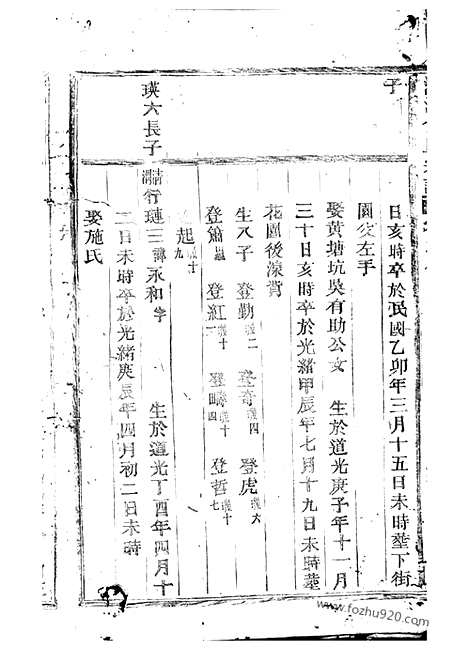 子
日亥時卒於民國乙卯年三月十五日未時塟下街
園公左手
娶黃塘坑吳有助公女 生於道光庚子年十一月
三十日亥時卒於光緒甲辰年七月十九日未時塟
花園後深背
生八子 登勤二 登奇四 登虎六
登紅十 登疇十 登哲十七
起十九
瑛六長子
行璉三諱永和字 生於道光丁酉年四月十
二日未時卒於光緒庚辰年四月初二日未時
娶施氏
www.fozhu920.com